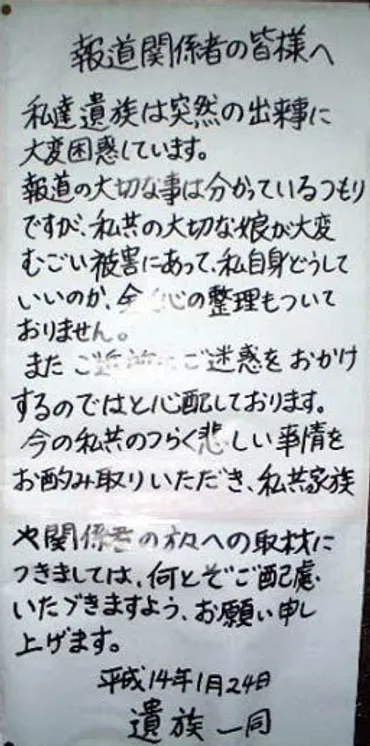 報道関係者の皆様へ
私達遺族は突然の出来事に
大変困惑しています。
報道の大切な事は分かっているつもり
ですが、私共の大切な娘が大変
むごい被害にあって、私自身どうして
いいのか、全く心の整理もついて
おりません。
また ご近所にご迷惑を おかけ
するのではと心配しております。
今の私共のつらく悲しい事情を
お酌み取りいただき、私共家族
や関係者の方々への取材に
つきましては、何とぞご配慮
いただきますよう、お願い申し
上げます。
平成14年1月24日
遺族一同